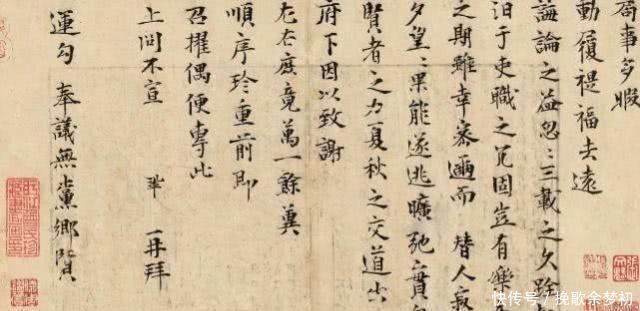 局事多暇
動履禔福去遠
誨論之益忽〻三載之久跧
汨于吏職之冗固豈有樂
之期雖幸密邇而替人寂
夕望〻果能遂逃曠弛之責
賢者之力夏秋之交道出
府下因以致謝
左右庶竟萬一餘冀
順序珍重前即
召擢偶便專此
上問不宣 鞏 再拜
運勾 奉議無黨鄉賢
快传号/挽歌余梦初